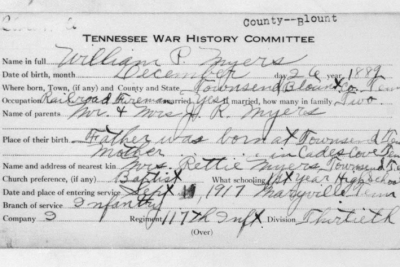 County--Blount
TENNESSEE WAR HISTORY COMMITTEE
Name in full William P. Myers
Date of birth, month December day 26 year 1889
Where born, Town, (if any) and County and State Townsend Blount Co. Tenn
Occupation Railroad Fireman married, Yes If married, how many in family Two
Name of parents Mr. & Mrs R. Myers
Place of their birth Father was born at Townsend Ten
Mother " " in Cades Cove Ten
Name and address of nearest kin Mrs. Rettie Myers Townsend
Church preference, (if any) Baptist What schooling 1st year High School
Date and place of entering service Sept 1917 Maryville Tenn
Branch of service Infantry
Company I Regiment 117th Inf Division Thirtieth
(Over)